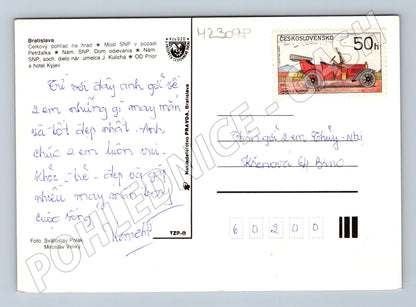 Bratislava
Celkový pohľad na hrad ★ Most SNP v pozadí
Petržalka ★ Nám. SNP, Dom odievania ★ Nám.
SNP, soch. dielo nár. umelca J. Kulicha ★ OD Prior
a hotel Kyjev
M2309P
ČESKOSLOVENSKO
50h
Từ nơi đây anh gởi về
2 em những gì may mắn
và tốt đẹp nhất. Anh
chúc 2 em luôn vui
khỏe - trẻ - đẹp và gặp
nhiều may mắn trong
cuộc sống
Thân gởi 2 em Thủy - 
Křenová 64 Brno
60200
Foto: Svätoslav Polák
Miroslav Velký
TZP-B
Nakladateľstvo PRAVDA, Bratislava
POHLEDNICE - CASH